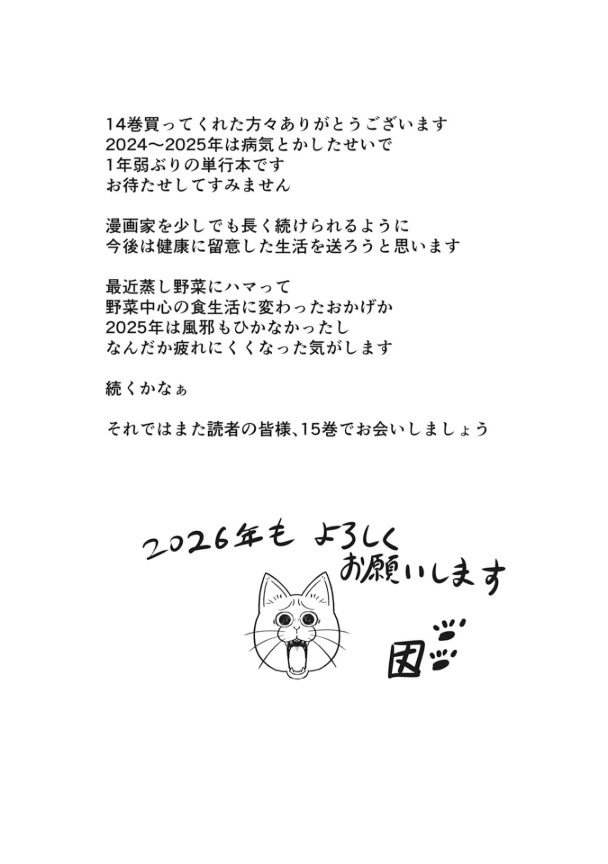 14巻買ってくれた方々ありがとうございます
2024〜2025年は病気とかしたせいで
1年弱ぶりの単行本です
お待たせしてすみません
漫画家を少しでも長く続けられるように
今後は健康に留意した生活を送ろうと思います
最近蒸し野菜にハマって
野菜中心の食生活に変わったおかげか
2025年は風邪もひかなかったし
なんだか疲れにくくなった気がします
続くかなぁ
それではまた読者の皆様、15巻でお会いしましょう
2026年も よろしく
お願いします
因